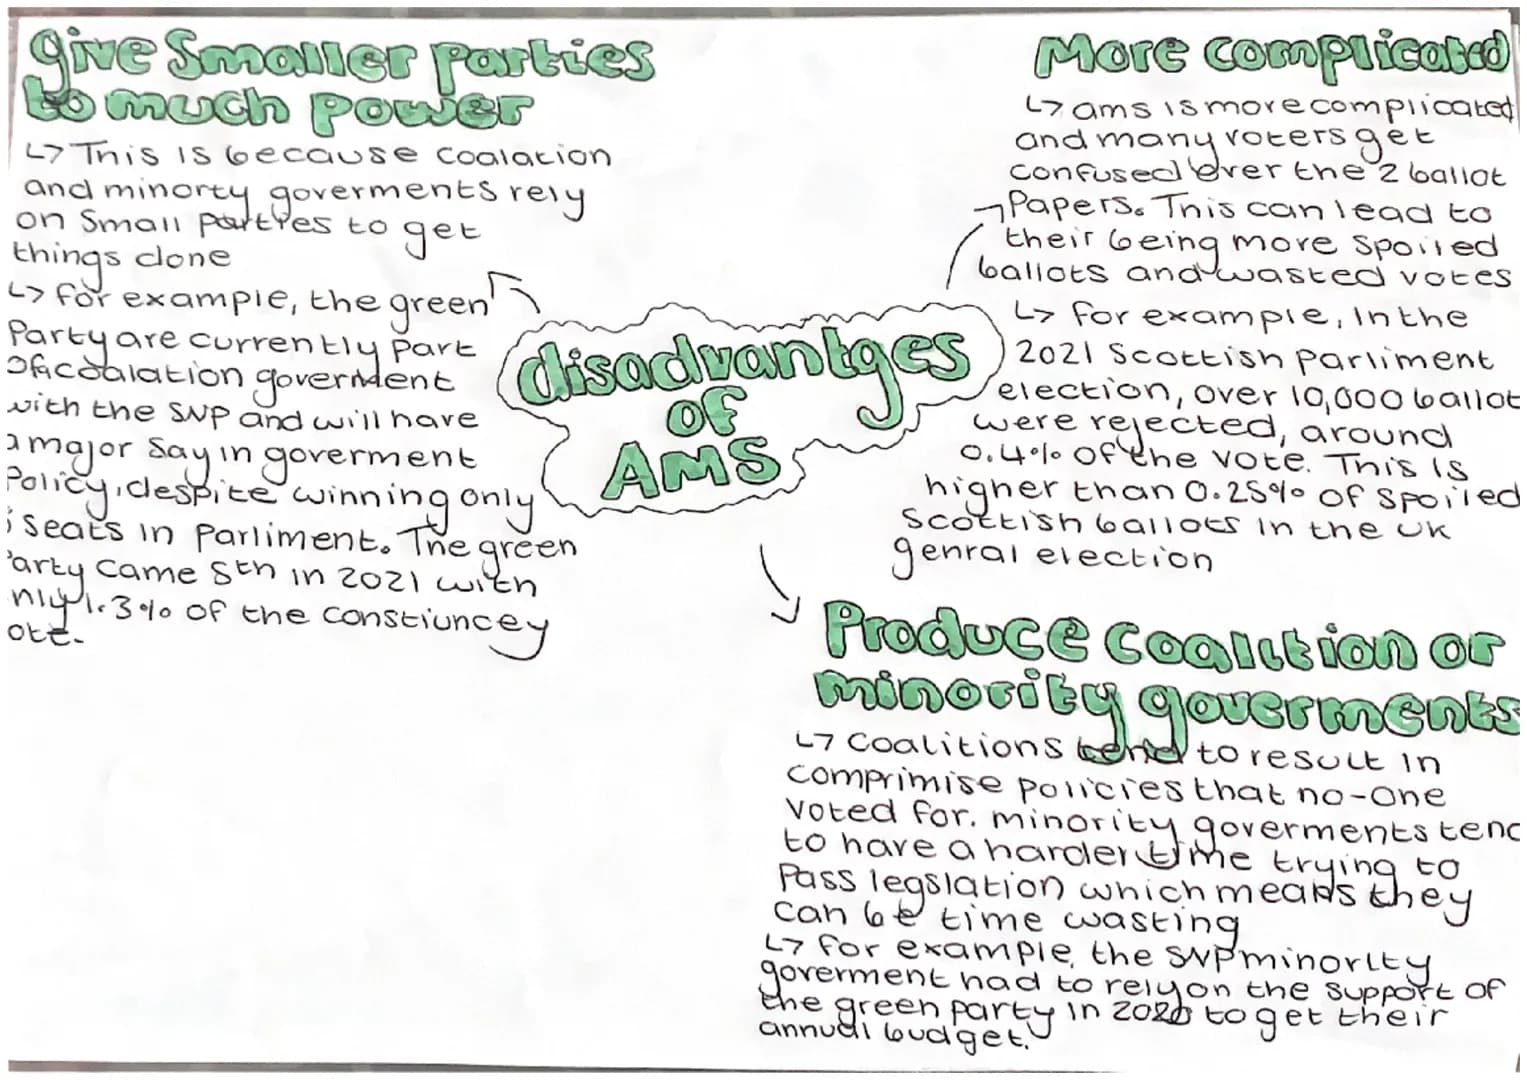 give Smaller parties
to much power
↳ This is because coalation
and minorty goverments rely
on Small parties to get
things done
↳ for example, the green
Party are currently part
of a coalation goverment
with the SNP and will have
a major say in goverment
Policy, despite winning only
seats in parliment. The green
arty came 5th in 2021 with
nly 1.3% of the constiuncey
ote.
disadvantges
of
AMS
More complicated
↳ ams is more complicated
and many voters get
confused over the 2 ballot
Papers. This can lead to
their being more spoiled
ballots and wasted votes
↳ for example, In the
2021 Scottish parliment
election, over 10,000 ballot
were rejected, around
0.4% of the vote. This is
higher than 0.25% of spoiled
Scottish ballots in the UK
genral election
Produce coalition or
minority goverments
↳ Coalitions tend to result in
comprimise policies that no-one
voted for. minority goverments tend
to have a harder time trying to
Pass legslation which means they
can be time wasting
↳ for example, the SNP minority
goverment had to rely on the support of
the green party in 2020 to get their
annual budget.